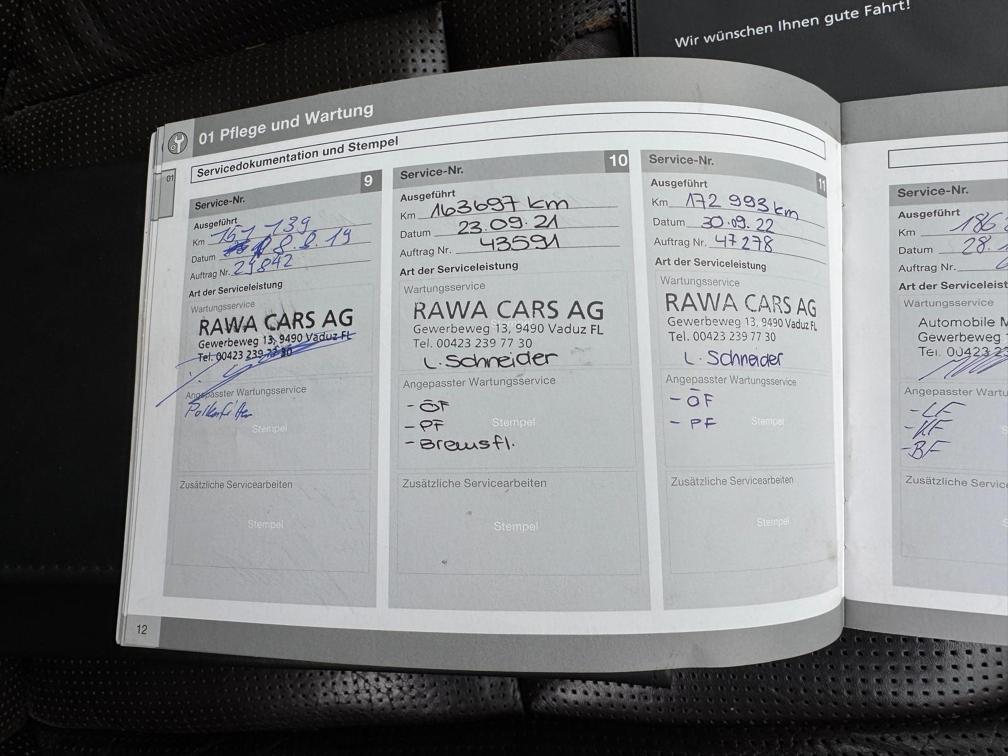 Wir wünschen Ihnen gute Fahrt!
01 Pflege und Wartung
Servicedokumentation und Stempel
01
Service-Nr. 9
Ausgeführt
Km 151 139
Datum 8.8.19
Auftrag Nr. 24842
Art der Serviceleistung
Wartungsservice
RAWA CARS AG
Gewerbeweg 13, 9490 Vaduz FL
Tel. 00423 239 77 30
Angepasster Wartungsservice
Stempel
Zusätzliche Servicearbeiten
Stempel
Service-Nr. 10
Ausgeführt
Km 163697 km
Datum 23.09.21
Auftrag Nr. 43591
Art der Serviceleistung
Wartungsservice
RAWA CARS AG
Gewerbeweg 13, 9490 Vaduz FL
Tel. 00423 239 77 30
L. Schneider
Angepasster Wartungsservice
- ÖF
- PF
Stempel
- Bremsfl.
Zusätzliche Servicearbeiten
Stempel
Service-Nr. 11
Ausgeführt
Km 172 993 km
Datum 30.09.22
Auftrag Nr. 47278
Art der Serviceleistung
Wartungsservice
RAWA CARS AG
Gewerbeweg 13, 9490 Vaduz FL
Tel. 00423 239 77 30
L. Schneider
Angepasster Wartungsservice
- ÖF
- PF
Stempel
Zusätzliche Servicearbeiten
Stempel
12
Service-Nr.
Ausgeführt
Km 186
Datum 28.
Auftrag Nr.
Art der Serviceleistung
Wartungsservice
Automobile M
Gewerbeweg 1
Tel. 00423 23
Angepasster W
- LF
- KF
- BF
Zusätzliche Servic
S